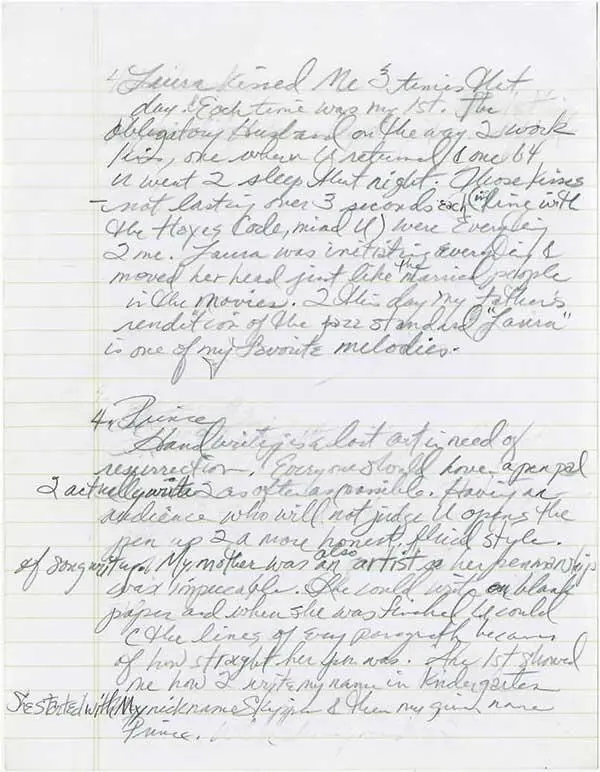 4. Laura kissed Me 3 times that
day. & Each time was my 1st. The
obligatory husband on the way 2 work
kiss, one when U returned & one b4
U went 2 sleep that night. Those kisses
- not lasting over 3 seconds each (in line with
the Hayes Code, mind U) were Everything
2 me. Laura was initiating Everything &
moved her head just like the married people
in the movies. 2 this day my father's
rendition of the jazz standard "Laura"
is one of my favorite melodies.
4. Prince
Handwriting is a lost art in need of
resurrection. Everyone should have a pen pal
2 actually write 2 as often as possible. Having an
audience who will not judge U opens the
pen up 2 a more honest, fluid style.
of songwriting. My mother was also an artist so her penmanship
was impeccable. She could write on blank
paper and when she was finished U could
C the lines of every paragraph because
of how straight her pen was. She 1st showed
me how 2 write my name in kindergarten
She started with My nickname Skipper & then my given name
Prince.